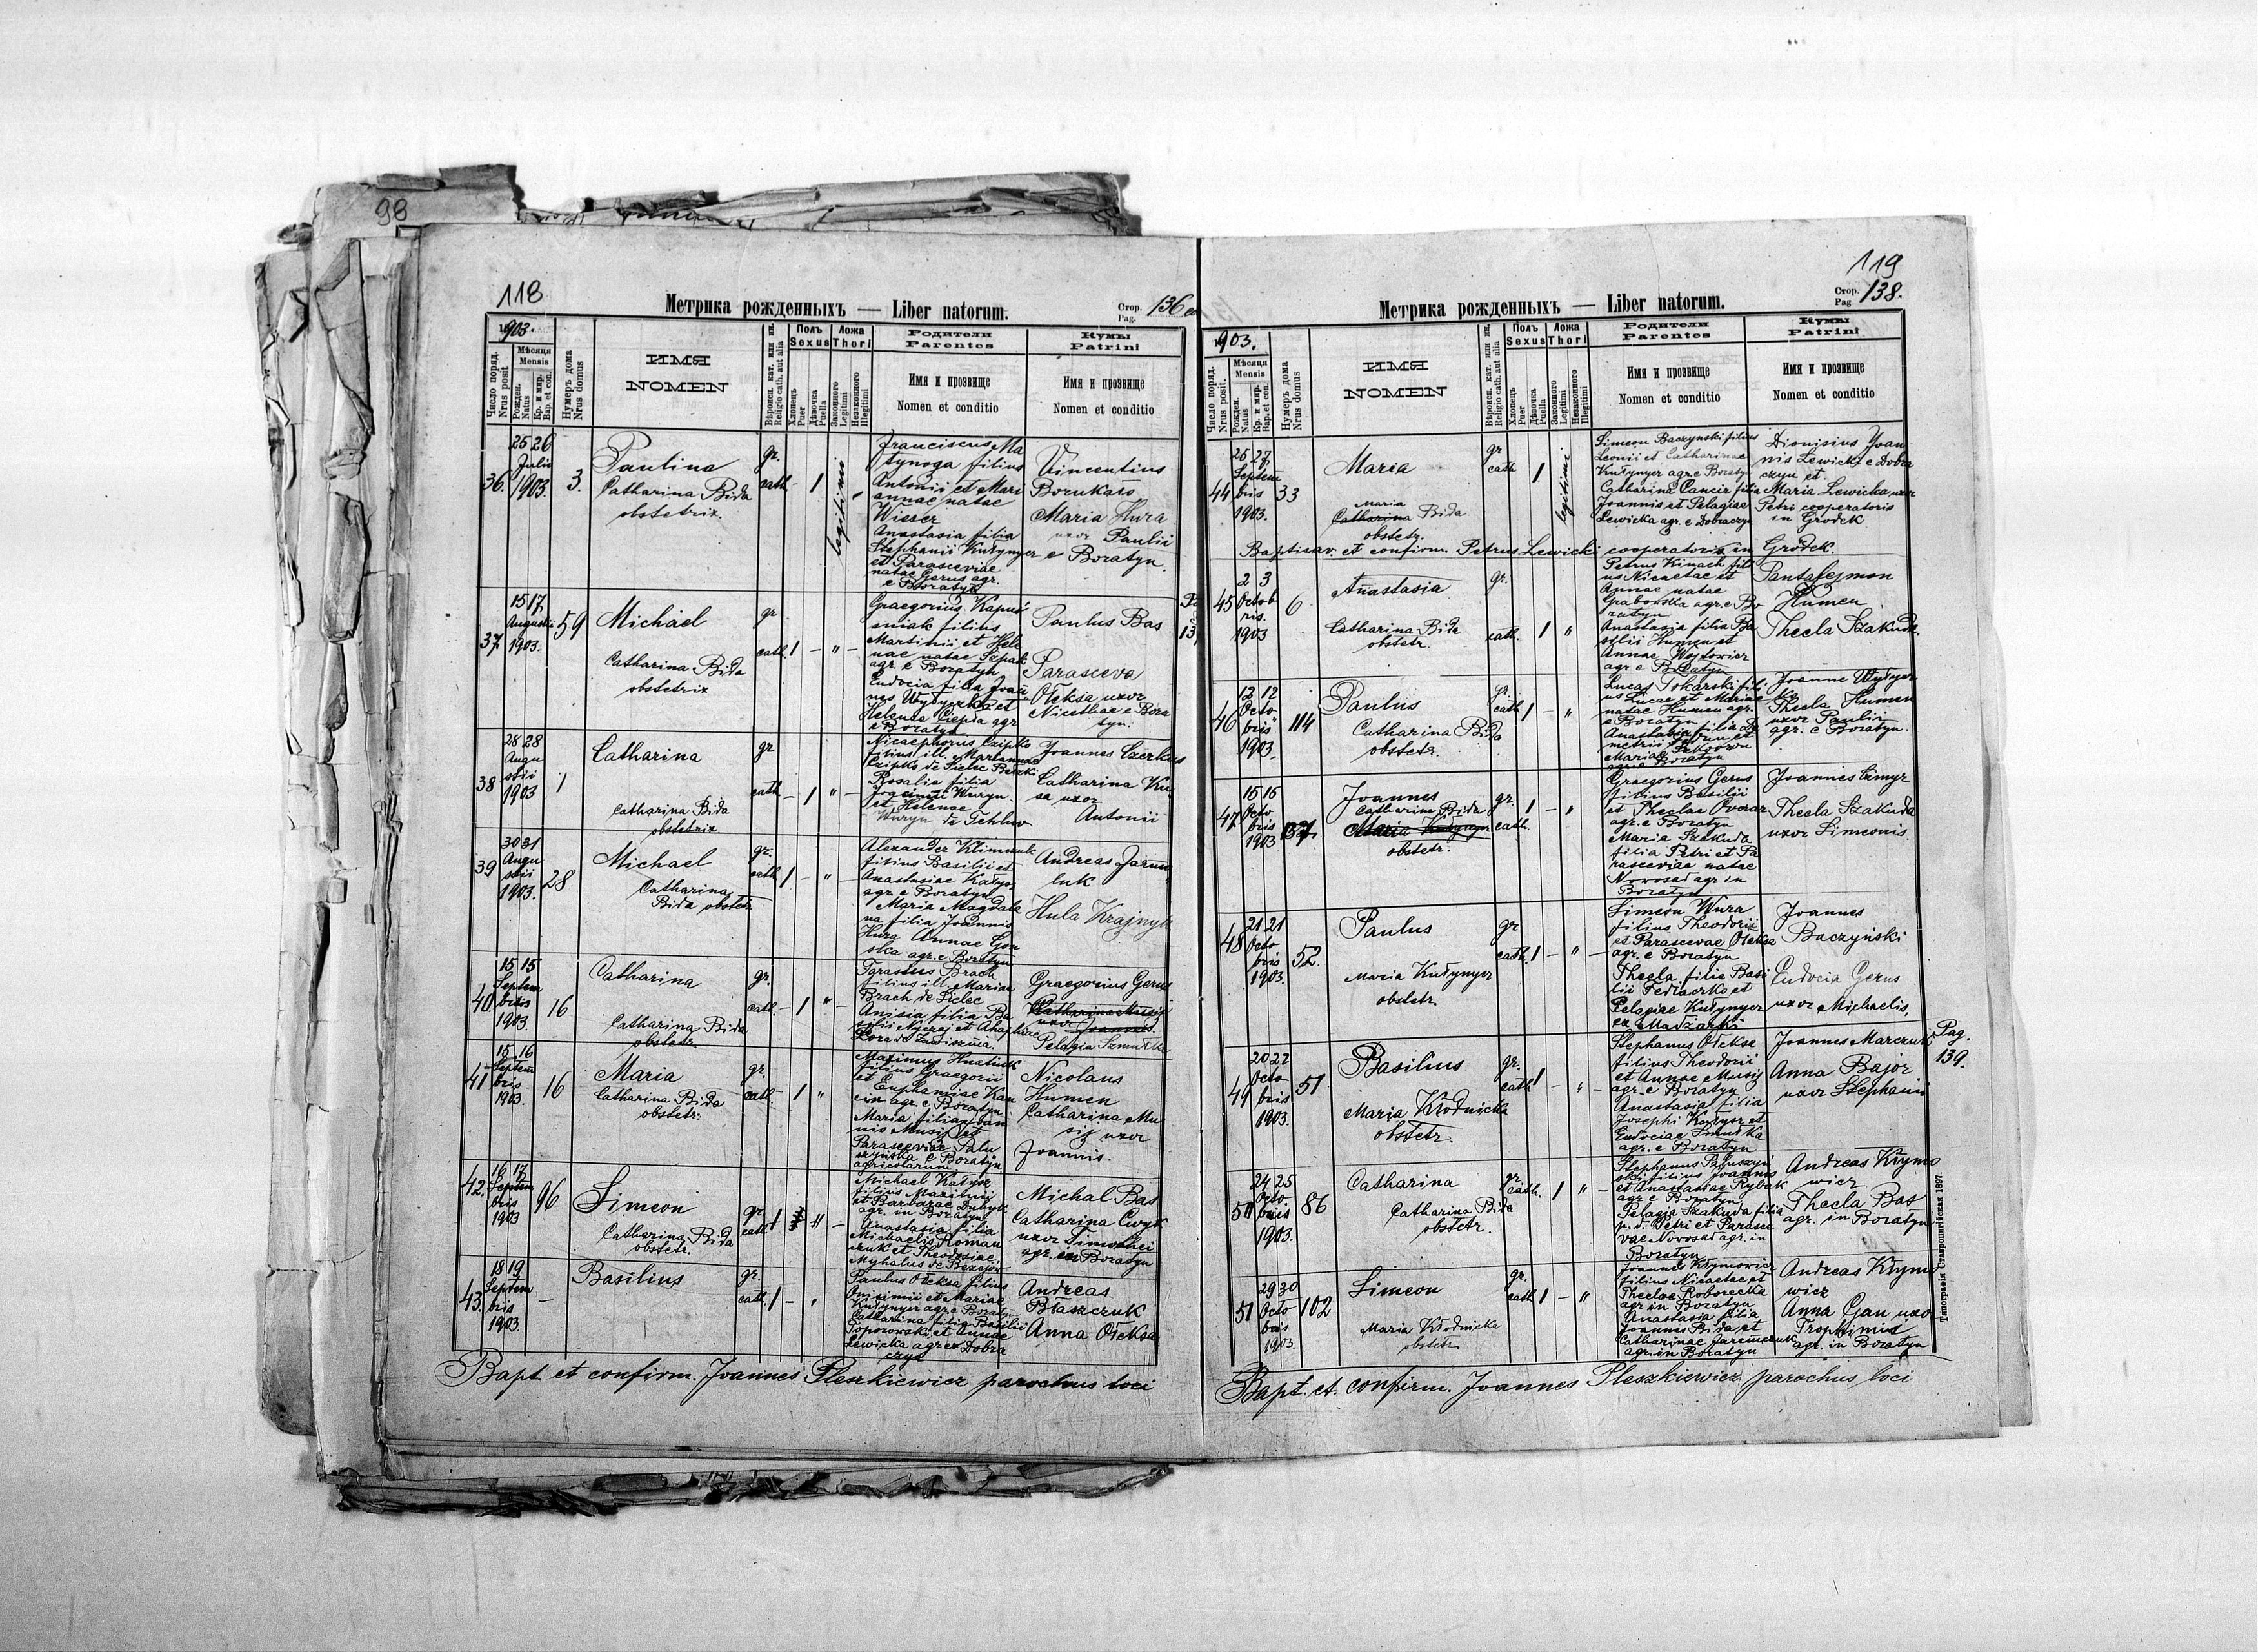 98
118
Метрика рожденныхъ — Liber natorum.
Стор. Pag. 136
1903.
Число поряд. Nrus posit
Мѣсяця Mensis
Рожден. Natus
Кр. и мир. Bap. et con.
Нумеръ дома Nrus domus
ИМЯ
NOMEN
Вѣроисп. кат. или ин. Religio cath. aut alia
Полъ Sexus
Хлопець Puer
Дѣвочка Puella
Ложа Thori
Законного Legitimi
Незаконного Illegitimi
Родители
Parentes
Имя и прозвище
Nomen et conditio
Кумы
Patrini
Имя и прозвище
Nomen et conditio
36.
25 26
Julii
1903.
3.
Paulina
Catharina Bida
obstetrix.
gr.
cath.
- 1
legitimi
Franciscus Ma
tynoga filius
Antonii et Mari
annae natae
Wieser
Anastasia filia
Stephanii Kułynycz
et Parasceviae
natae Gerus agr.
e Boratyn
Vincentius
Borukało
Maria Hura
uxor Paulii
e Boratyn.
37
15 17
Augusti
1903.
59
Michael
Catharina Bida
obstetrix
gr
cath.
1 - " -
Graegorius Kapuś
śniak filius
Martinii et Hele
nae natae Szpak
agr. e Boratyn
Eudocia filia Joan
nes Wytyczko et
Helenae Ciepła agr
e Boratyn
Paulus Bas
Parasceva
Ołeksa uxor
Nicetae e Bora
tyn.
38
28 28
Augu
stii
1903
1
Catharina
Catharina Bida
obstetrix
gr
cath
- 1 " -
Nicaephorus Czipko
filius ill. Mariannae
Czipko de Sielec Bieńki
Rosalia filia
Joacimii Wuryn
et Helenae
Wuryn de Tehlow
Joannes Czerkas
Catharina Ku
sa uxor
Antonii
39
30 31
Augu
stii
1903.
28
Michael
Catharina
Bida obstetr
gr.
cath
1 - " -
Alexander Klimczuk
filius Basilii et
Anastasiae Katysz
agr. e Boratyn
Maria Magdale
na filia Joannis
Hura Annae Gon
ska agr. e Boratyn
Andreas Jarem
luk
Hula Krajnyk
40.
15 15
Septem
bris
1903.
16
Catharina
Catharina Bida
obstetr.
gr.
cath.
- 1 " -
Tarasius Brach
filius ill. Mariae
Brach de Sielec
Anisia filia Ba
silii Nyczaj et Ahaphiae
Graegorius Gerus
Catharina Musij
uxor Joannis.
Pelagia
41
15 16
Septem
bris
1903.
16
Maria
Catharina Bida
obstetr:
gr.
cath.
- 1 "
Maximus Hnatiuk
filius Graegorii
et Euphamiae Kan
cin agr. e Boratyn
Maria filia Joan
nis Musij et
Parasceviae Palu
szyńska e Boratyn
agricolarum
Nicolaus
Humen
Catharina Mu
sij uxor
Joannis.
42.
16 17
Septem
bris
1903
96
Simeon
Catharina Bida
obstetr.
gr.
cath
1 " -
Michael Katysz
filius Maximii
et Barbarae Dubyk
agr. in Boratyn
Anastasia filia
Michaelis Roman
czuk et Theodosiae
Myhalus de Bezejow
Michal Bas
Catharina Cwyk
uxor Timothei
agr. in Boratyn
43.
18 19
Septem
bris
1903.
-
Basilius
gr.
cath.
1 - "
Paulus Ołeksa filius
Onisimii et Mariae
Kułynycz agr. e Boratyn
Catharina filia Basilii
Toporowski et Annae
Lewicka agr ex Dobra
czyn
Andreas
Błaszczuk
Anna Ołeksa
Bapt. et confirm. Joannes Pleszkiewicz parochus loci
119
Метрика рожденныхъ — Liber natorum.
Стор. Pag 138.
1903.
Число поряд. Nrus posit.
Мѣсяця Mensis
Рожден. Natus
Кр. и мир. Bap. et con.
Нумеръ дома Nrus domus
ИМЯ
NOMEN
Вѣроисп. кат. или ин. Religio cath. aut alia
Полъ Sexus
Хлопець Puer
Дѣвочка Puella
Ложа Thori
Законного Legitimi
Незаконного Illegitimi
Родители
Parentes
Имя и прозвище
Nomen et conditio
Кумы
Patrini
Имя и прозвище
Nomen et conditio
44
25 27
Septem
bris
1903.
33
Maria
Maria
Catharina Bida
obstetr.
gr
cath
1
legitimi
Simeon Baczynski filius
Leonii et Catharinae
Kułynycz agr. e Boratyn
Catharina Cancir filia
Joannis et Pelagiae
Lewicka agr. e Dobraczyn
Dionisius Joan
nis Lewicki e Dobra
czyn et
Maria Lewicka uxor
Petri cooperatoris
in Grodek
Baptisav. et confirm. Petrus Lewicki cooperatoris in Grodek.
45
2 3
Octob
ris.
1903
6
Anastasia
Catharina Bida
obstetr.
gr.
cath.
1 "
Petrus Kinach fili
us Nicaetae et
Annae natae
Graborska agr. e Bo
ratyn
Anastasia filia Ba
silii Humen et
Annae Wojtowicz
agr e Boratyn
Pantalejmon
Humen
Thecla Szakuda.
46
12 12
Octo
bris
1903
114
Paulus
Catharina Bida
obstetr.
gr.
cath
1 - "
Lucas Tokarski fili
us Lucae et Mariae
natae Humen agr.
e Boratyn
Anastasia filia De
metrii
Mariae
agr. e Boratyn
Joanne Wytycz
ko
Thecla Humen
uxor Paulii
agr. e Boratyn.
47
15 15
Octo
bris
1903
137
Joannes
Catharina Bida
Maria Kułynycz
obstetr.
gr.
cath.
1 - "
Graegorius Gerus
filius Basilii
et Theclae Ovczar
agr. e Boratyn
Maria Szakuda
filia Petri et Pa
rasceviae natae
Novosad agr in
Boratyn
Joannes Czmyr
Thecla Szakuda
uxor Simeonis.
48
21 21
Octo
bris
1903.
52.
Paulus
Maria Kułynycz
obstetr.
gr
cath.
1 - " -
Simeon Wura
filius Theodorii
et Parascevae Ołeksa
agr. e Boratyn
Thecla filia Basi
lii Fediaczko et
Pelagiae Kułynycz
ex Madżarki
Joannes
Baczyński
Eudocia Gerus
uxor Michaelis,
49
20 22
Octo
bris
1903.
51
Basilius
Maria Kłodnicka
obstetr.
gr.
cath.
1 - " -
Stephanus Ołeksa
filius Theodorii
et Annae Musij
agr. e Boratyn
Anastasia filia
Josephi Katysz et
Eudociae
agr. e Boratyn
Joannes Marczuk
Anna Bajor
uxor Stephanii
Pag.
139.
50
24 25
Octo
bris
1903.
86
Catharina
Catharina Bida
obstetr.
gr.
cath.
1 " -
Stephanus Paluszyń
ski filius Joannis
et Anastasiae Rybak
agr e Boratyn
Pelagia Szakuda filia
p.d. Petri et Parasce
vae Novosad agr. in
Boratyn
Andreas Kłymo
wicz
Thecla Bas
agr. in Boratyn
51
29 30
Octo
bris
1903.
102
Simeon
Maria Kłodnicka
obstetr.
gr.
cath
1 - "
Joannes Kłymowicz
filius Nicaetae et
Theclae Roborecka
agr in Boratyn
Anastasia filia
Joannes Bida et
Catharinae Jaremczuk
agr. in Boratyn
Andreas Kłymo
wicz
Anna Gan uxor
Trophimii
agr. in Boratyn
Типографія Ставропигійская 1897.
Bapt. et. confirm. Joannes Pleszkiewicz parochus loci